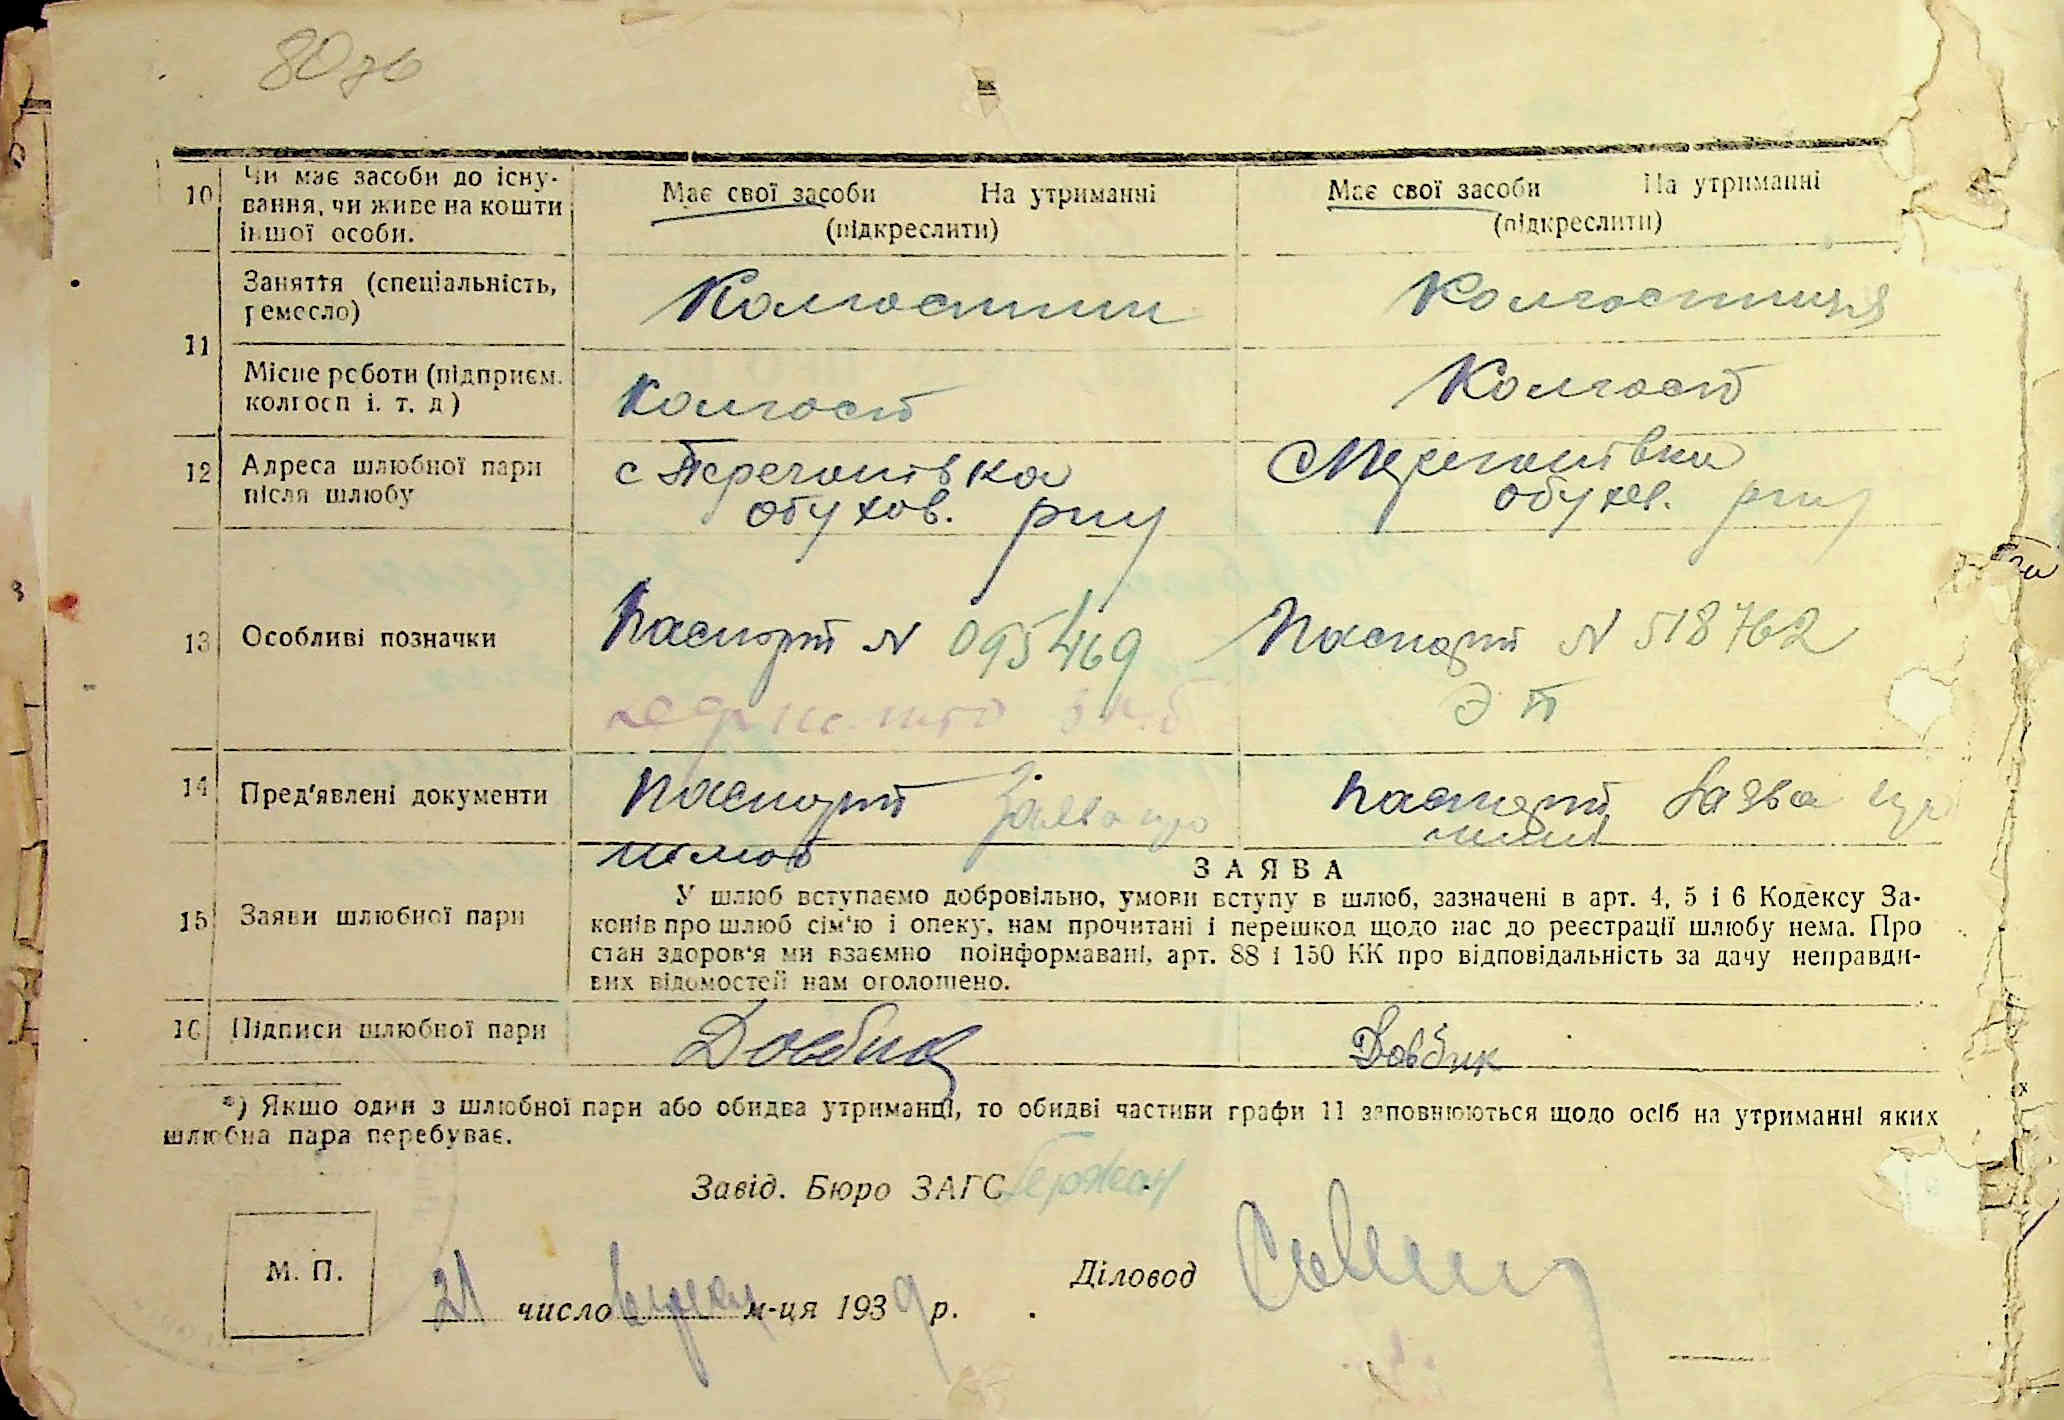 80 зв
10 Чи має засоби до існу- Має свої засоби На утриманні Має свої засоби На утриманні
вання, чи живе на кошти (підкреслити) (підкреслити)
іншої особи.
11 Заняття (спеціальність, Колгоспник Колгоспниця
ремесло)
Місце роботи (підприєм. Колгосп Колгосп
колгосп і. т. д)
12 Адреса шлюбної пари с Перегонівка с Перегонівка
після шлюбу обухов. р-ну обухов. р-ну
13 Особливі позначки Паспорт N 095469 Паспорт N 518762
ЭП
14 Пред'явлені документи Паспорт Заява про Паспорт Заява про
шлюб шлюб
З А Я В А
15 Заяви шлюбної пари У шлюб вступаємо добровільно, умови вступу в шлюб, зазначені в арт. 4, 5 і 6 Кодексу За-
конів про шлюб сім'ю і опеку, нам прочитані і перешкод щодо нас до реєстрації шлюбу нема. Про
стан здоров'я ми взаємно поінформавані, арт. 88 і 150 КК про відповідальність за дачу неправди-
вих відомостей нам оголошено.
16 Підписи шлюбної пари Довбик Довбик
*) Якщо один з шлюбної пари або обидва утриманці, то обидві частини графи 11 заповнюються щодо осіб на утриманні яких
шлюбна пара перебуває.
Завід. Бюро ЗАГС
М. П. Діловод
21 число м-ця 1939 р.